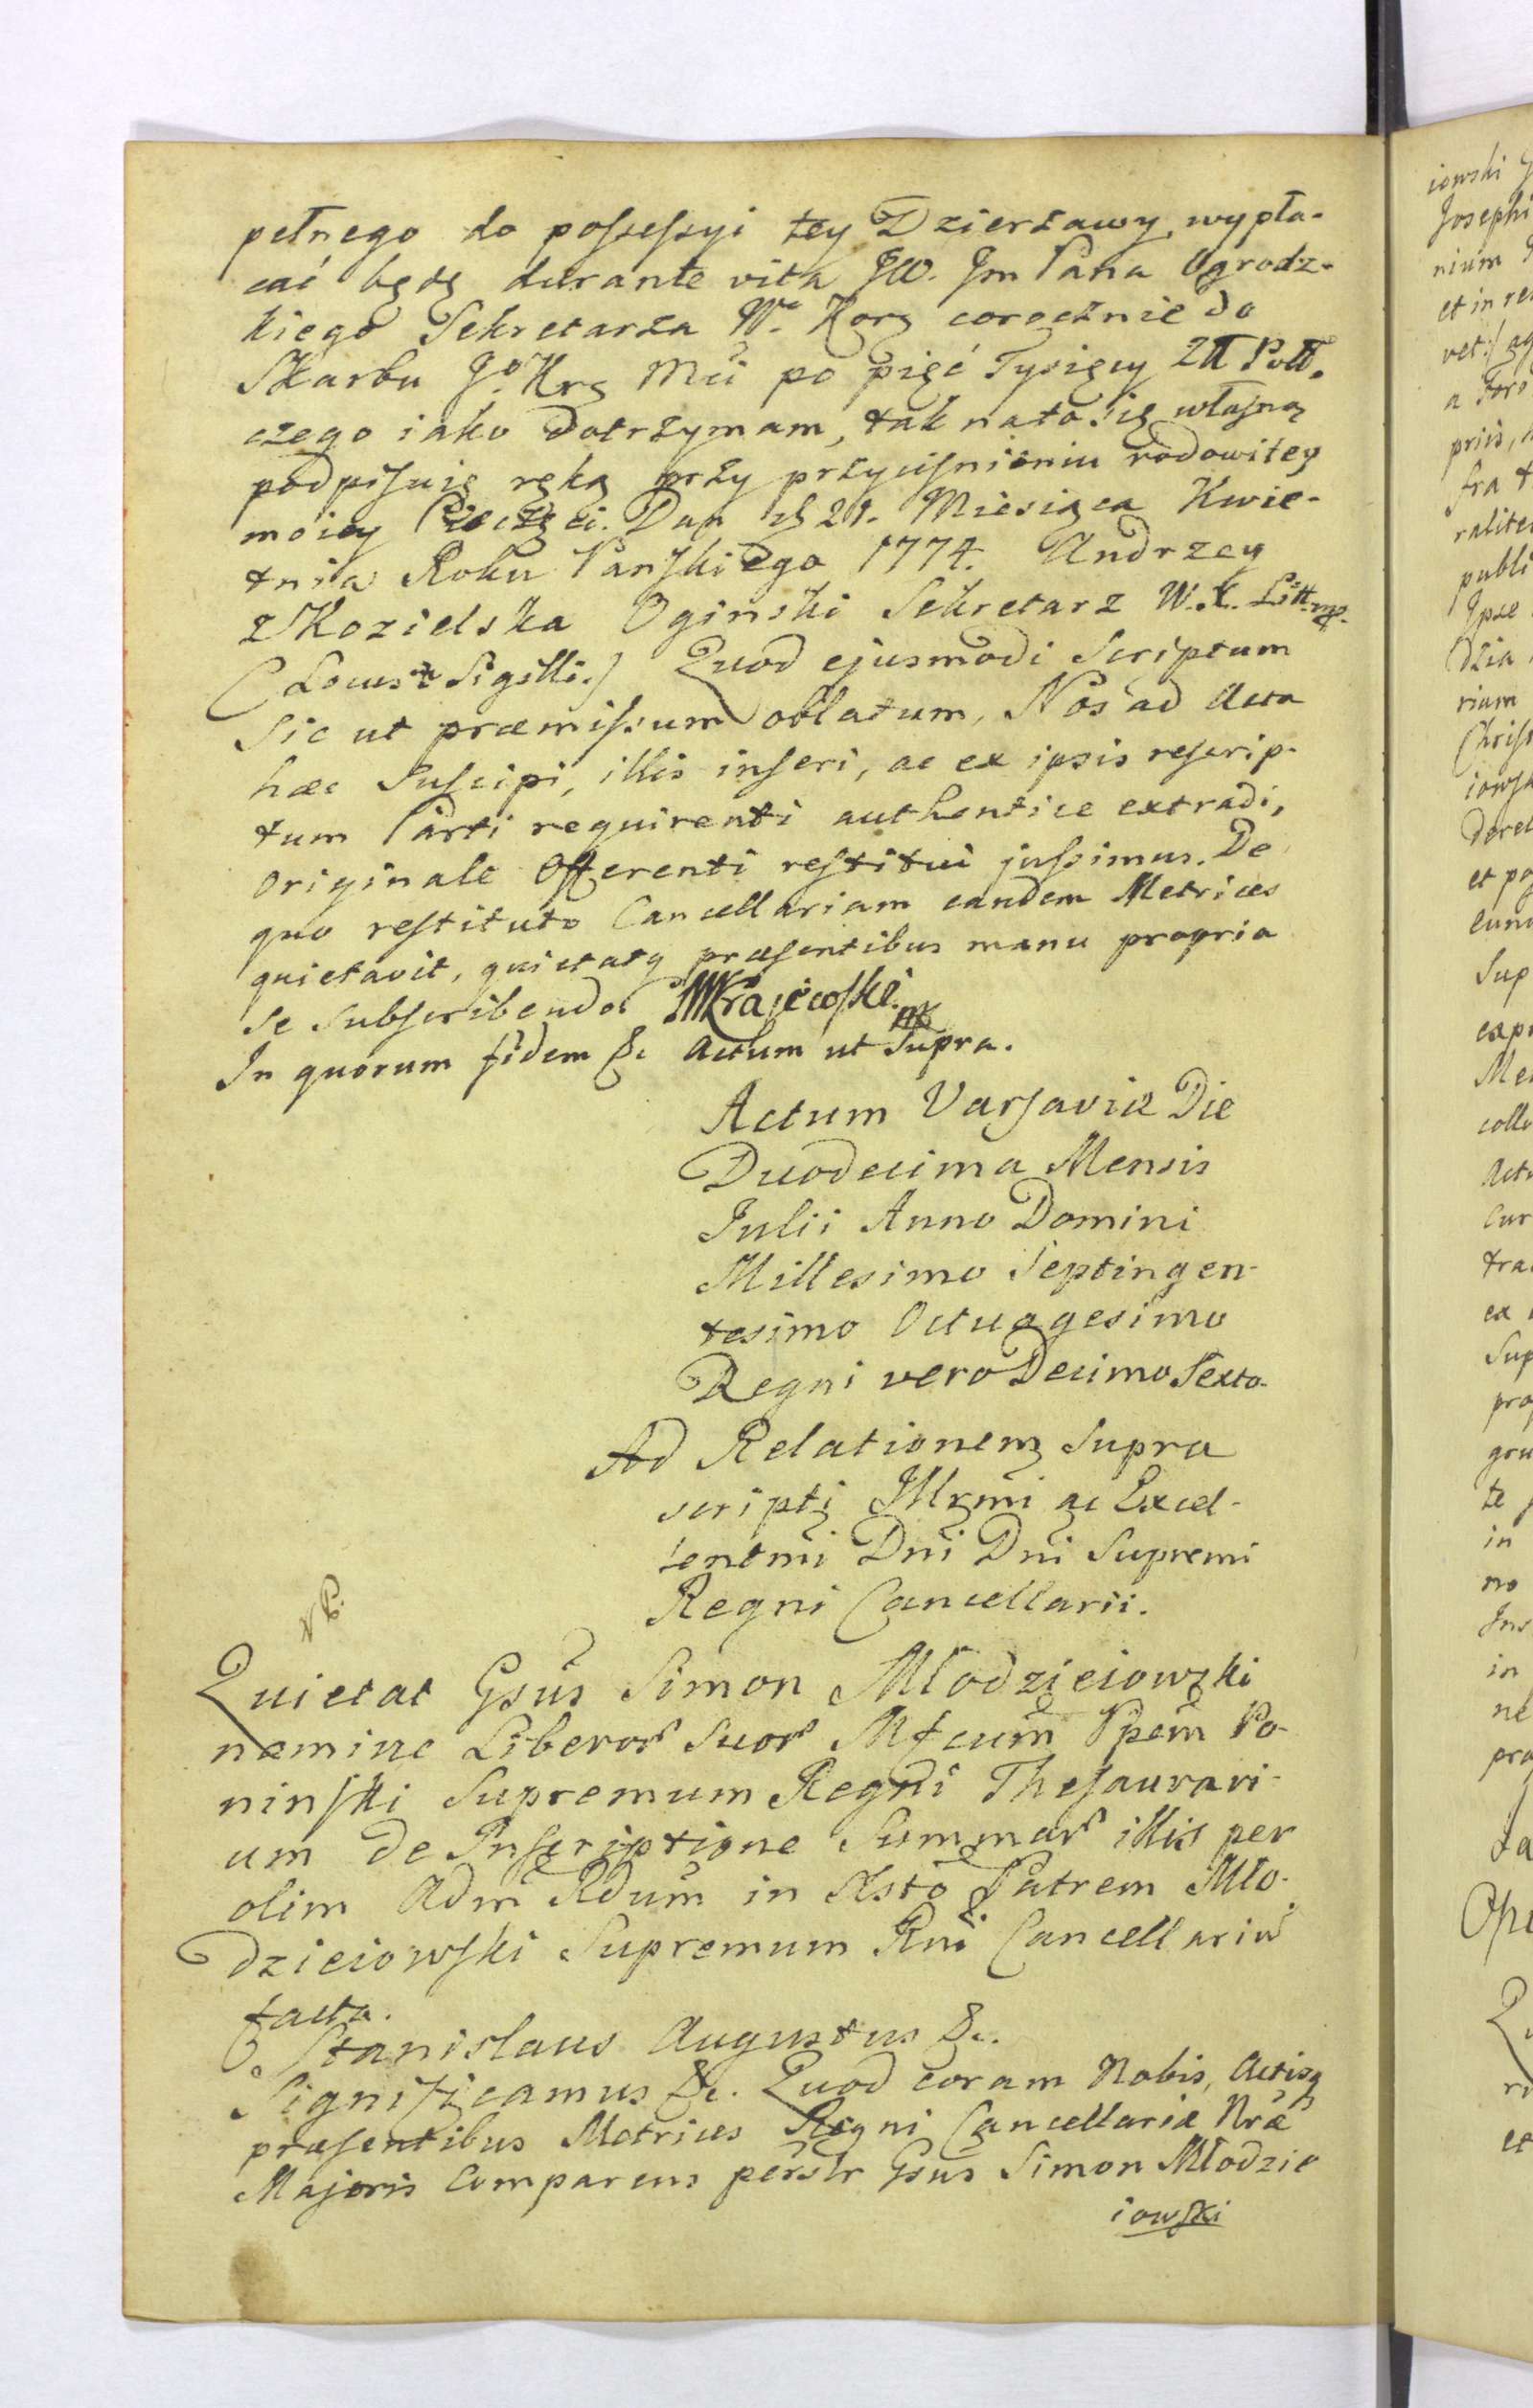 pełnego do possessyi tey Dzierżawy, wypła-
cać będę durante vita JW. Jm Pana Ogrodz-
kiego Sekretarza Wo. Korg corocznie do
Skarbu Jo. Krg Mci po pięć Tysięcy Zł Poll.
czego iako dotrzymam, tak nato się własną
podpisuię ręką przy przyciśnieniu rodowitey
moiey Pieczęci. Dan d 21. Miesiąca Kwie-
tnia Roku Pańskiego 1774. Andrzey
z Kozielska Oginski Sekretarz W. X. Litt. mp.
(Locus Sigilli.) Quod ejusmodi Scriptum
sic ut præmissum oblatum, Nos ad Acta
hæc suscipi, illis inseri, ac ex ipsis rescrip-
tum Parti requirenti authentice extradi,
Originale Offerenti restitui jussimus. De
quo restituto Cancellariam eandem Metrices
quietavit, quietatq præsentibus manu propria
se subscribendo. Krajewski mp
In quorum fidem &c Actum ut supra.
Actum Varsaviæ Die
Duodecima Mensis
Julii Anno Domini
Millesimo Septingen-
tesimo Octuagesimo
Regni vero Decimo Sexto.
Ad Relationem supra
scripti Illmi ac Excel-
lentmi Dni Dni Supremi
Regni Cancellarii.
Quietat Gsus Simon Młodzieiowski
nomine Liberor suor Mfcum Ppem Po-
ninski Supremum Regni Thesaurari-
um de Inscriptione Summar illis per
olim Adm Rdum in Xsto Patrem Mło-
dzieiowski Supremum Rni Cancellariu
facta.
Stanislaus Augustus &c.
Significamus &c. Quod coram Nobis, Actisq
præsentibus Metrices Regni Cancellariæ Nræ
Majoris comparens persłr Gsus Simon Młodzie
iowski